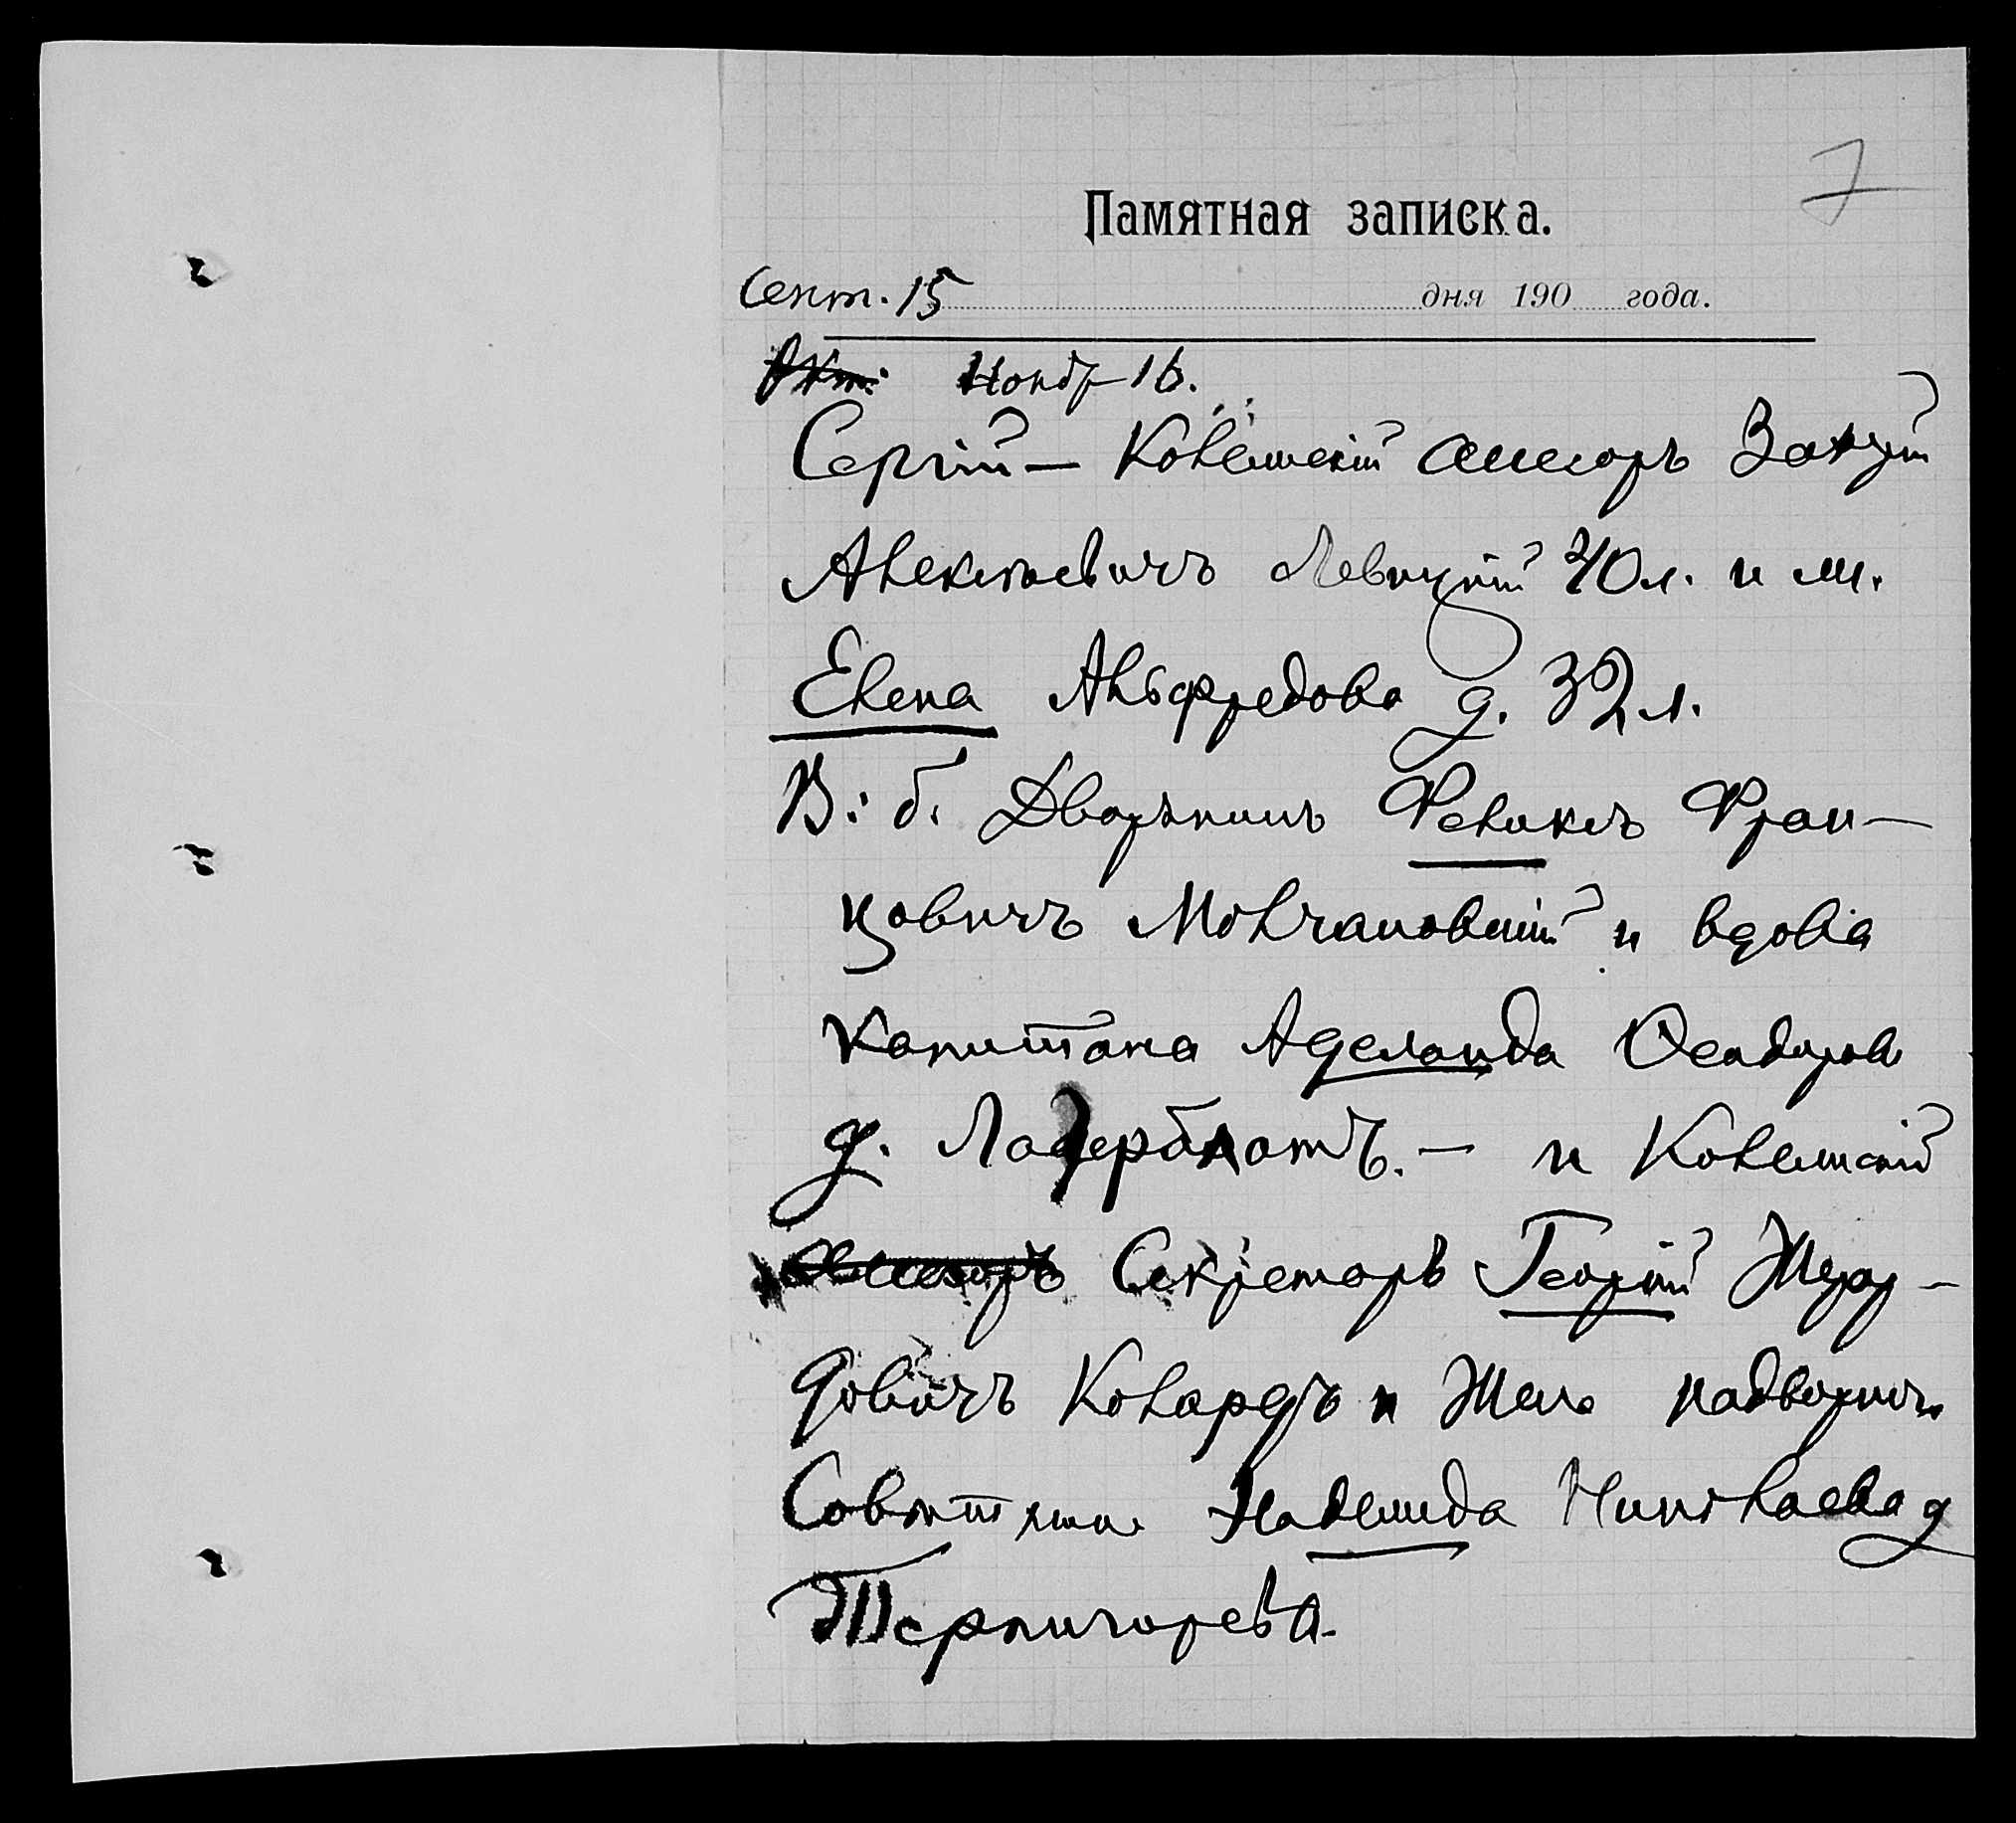 7
Памятная записка.
Сент. 15 дня 190 года.
Окт. Нояб 16.
Сергій — Коллежскій ассесоръ
Алексѣевичъ Левицкій 40 л. и ж.
Елена Альфредова д. 32 л.
В: б. Дворянинъ Феликсъ Фран-
цовичъ Молчановскій и вдова
Капитана Аделаида Ѳеодоров
д. – и Коллежскій
Ассесоръ Секретарь Георгій Жерар-
довичъ и Жена надворнаго
Совѣтника Надежда Николаева д
Терпигорева.